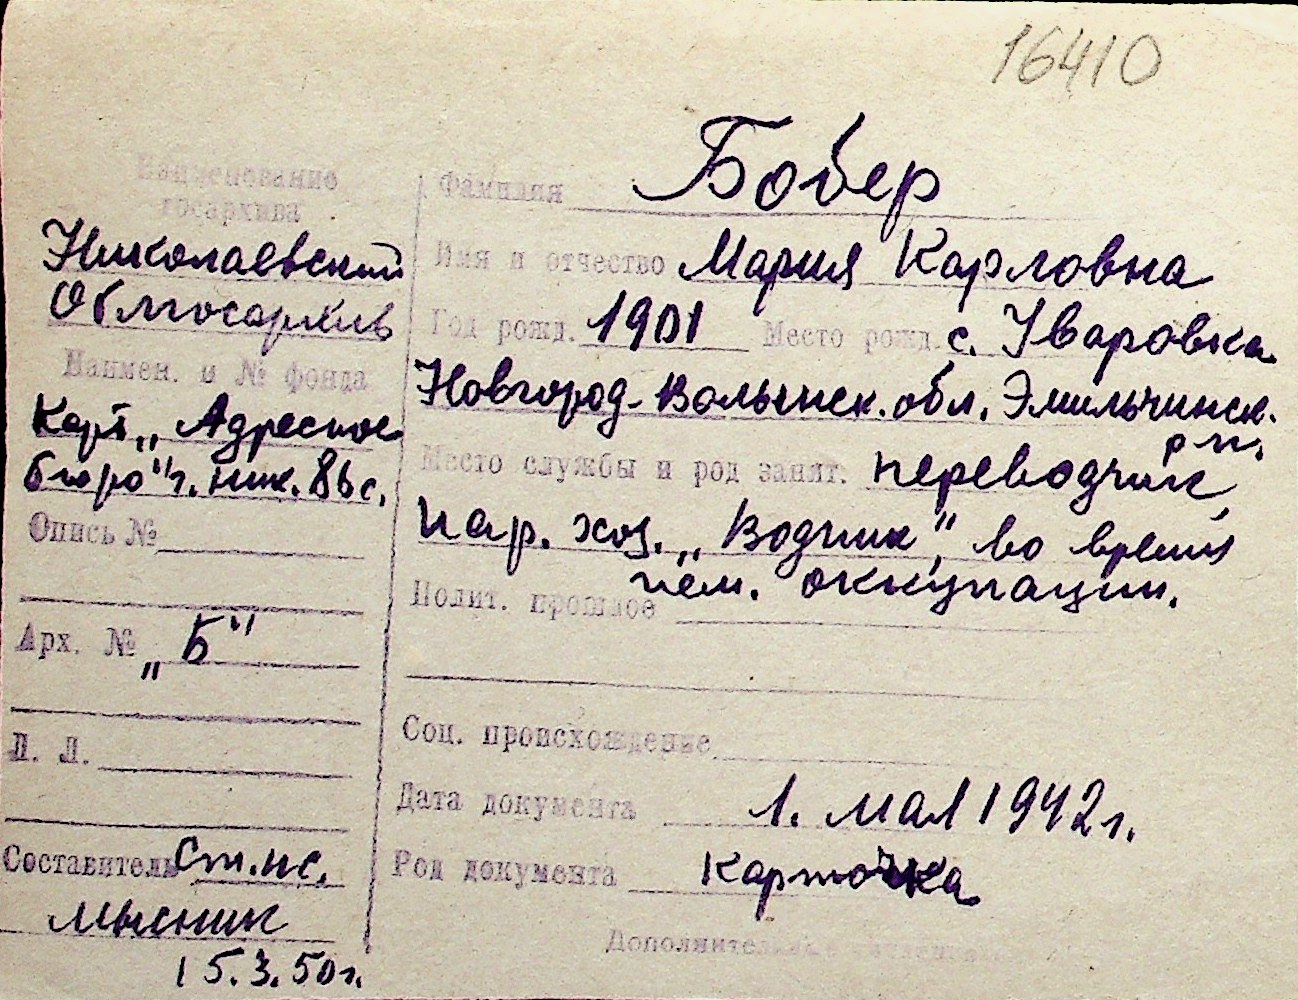 16410
Наименование
госархива
Николаевский
Облгосархив
Наимен. и № фонда
Карт. „Адресное
бюро" г. ник. 86 с.
Опись №
Арх. № „Б"
Л. Л.
Составитель ст. нс.
Мысник
15.3.50г.
Фамилия Бобер
Имя и отчество Мария Карловна
Год рожд. 1901 Место рожд. с. Уваровка
Новгород-Волынск. обл. Эмильчинск.
р-н.
Место службы и род занят. переводчик,
пар. хоз. „Водник", во время
нем. оккупации.
Полит. прошлое
Соц. происхождение
Дата документа 1. мая 1942 г.
Род документа Карточка